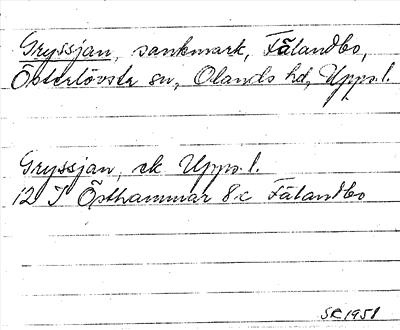 Gryssjan, sankmark, Fälandbo,
Österlövsta sn, Olands hd, Upps.l.
Gryssjan, ek Upps.l.
12 I Östhammar 8c Fälandbo
SR 1951